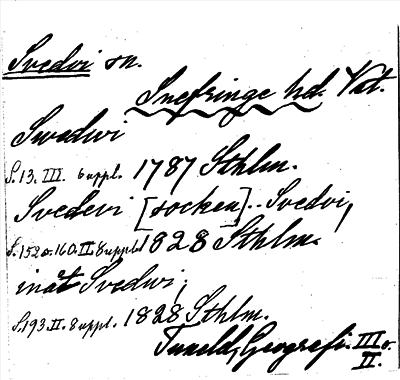 Svedvi sn.
Snefringe hd. Vst.
Swedwi
S. 13. III. 6 uppl. 1787 Sthlm.
Svedevi [socken].. Svedvi,
S. 152 o. 160. II. 8 uppl. 1828 Sthlm.
inåt Svedwi,
S. 193. II. 8 uppl. 1828 Sthlm.
Tuneld, Geografi. III o.
II.